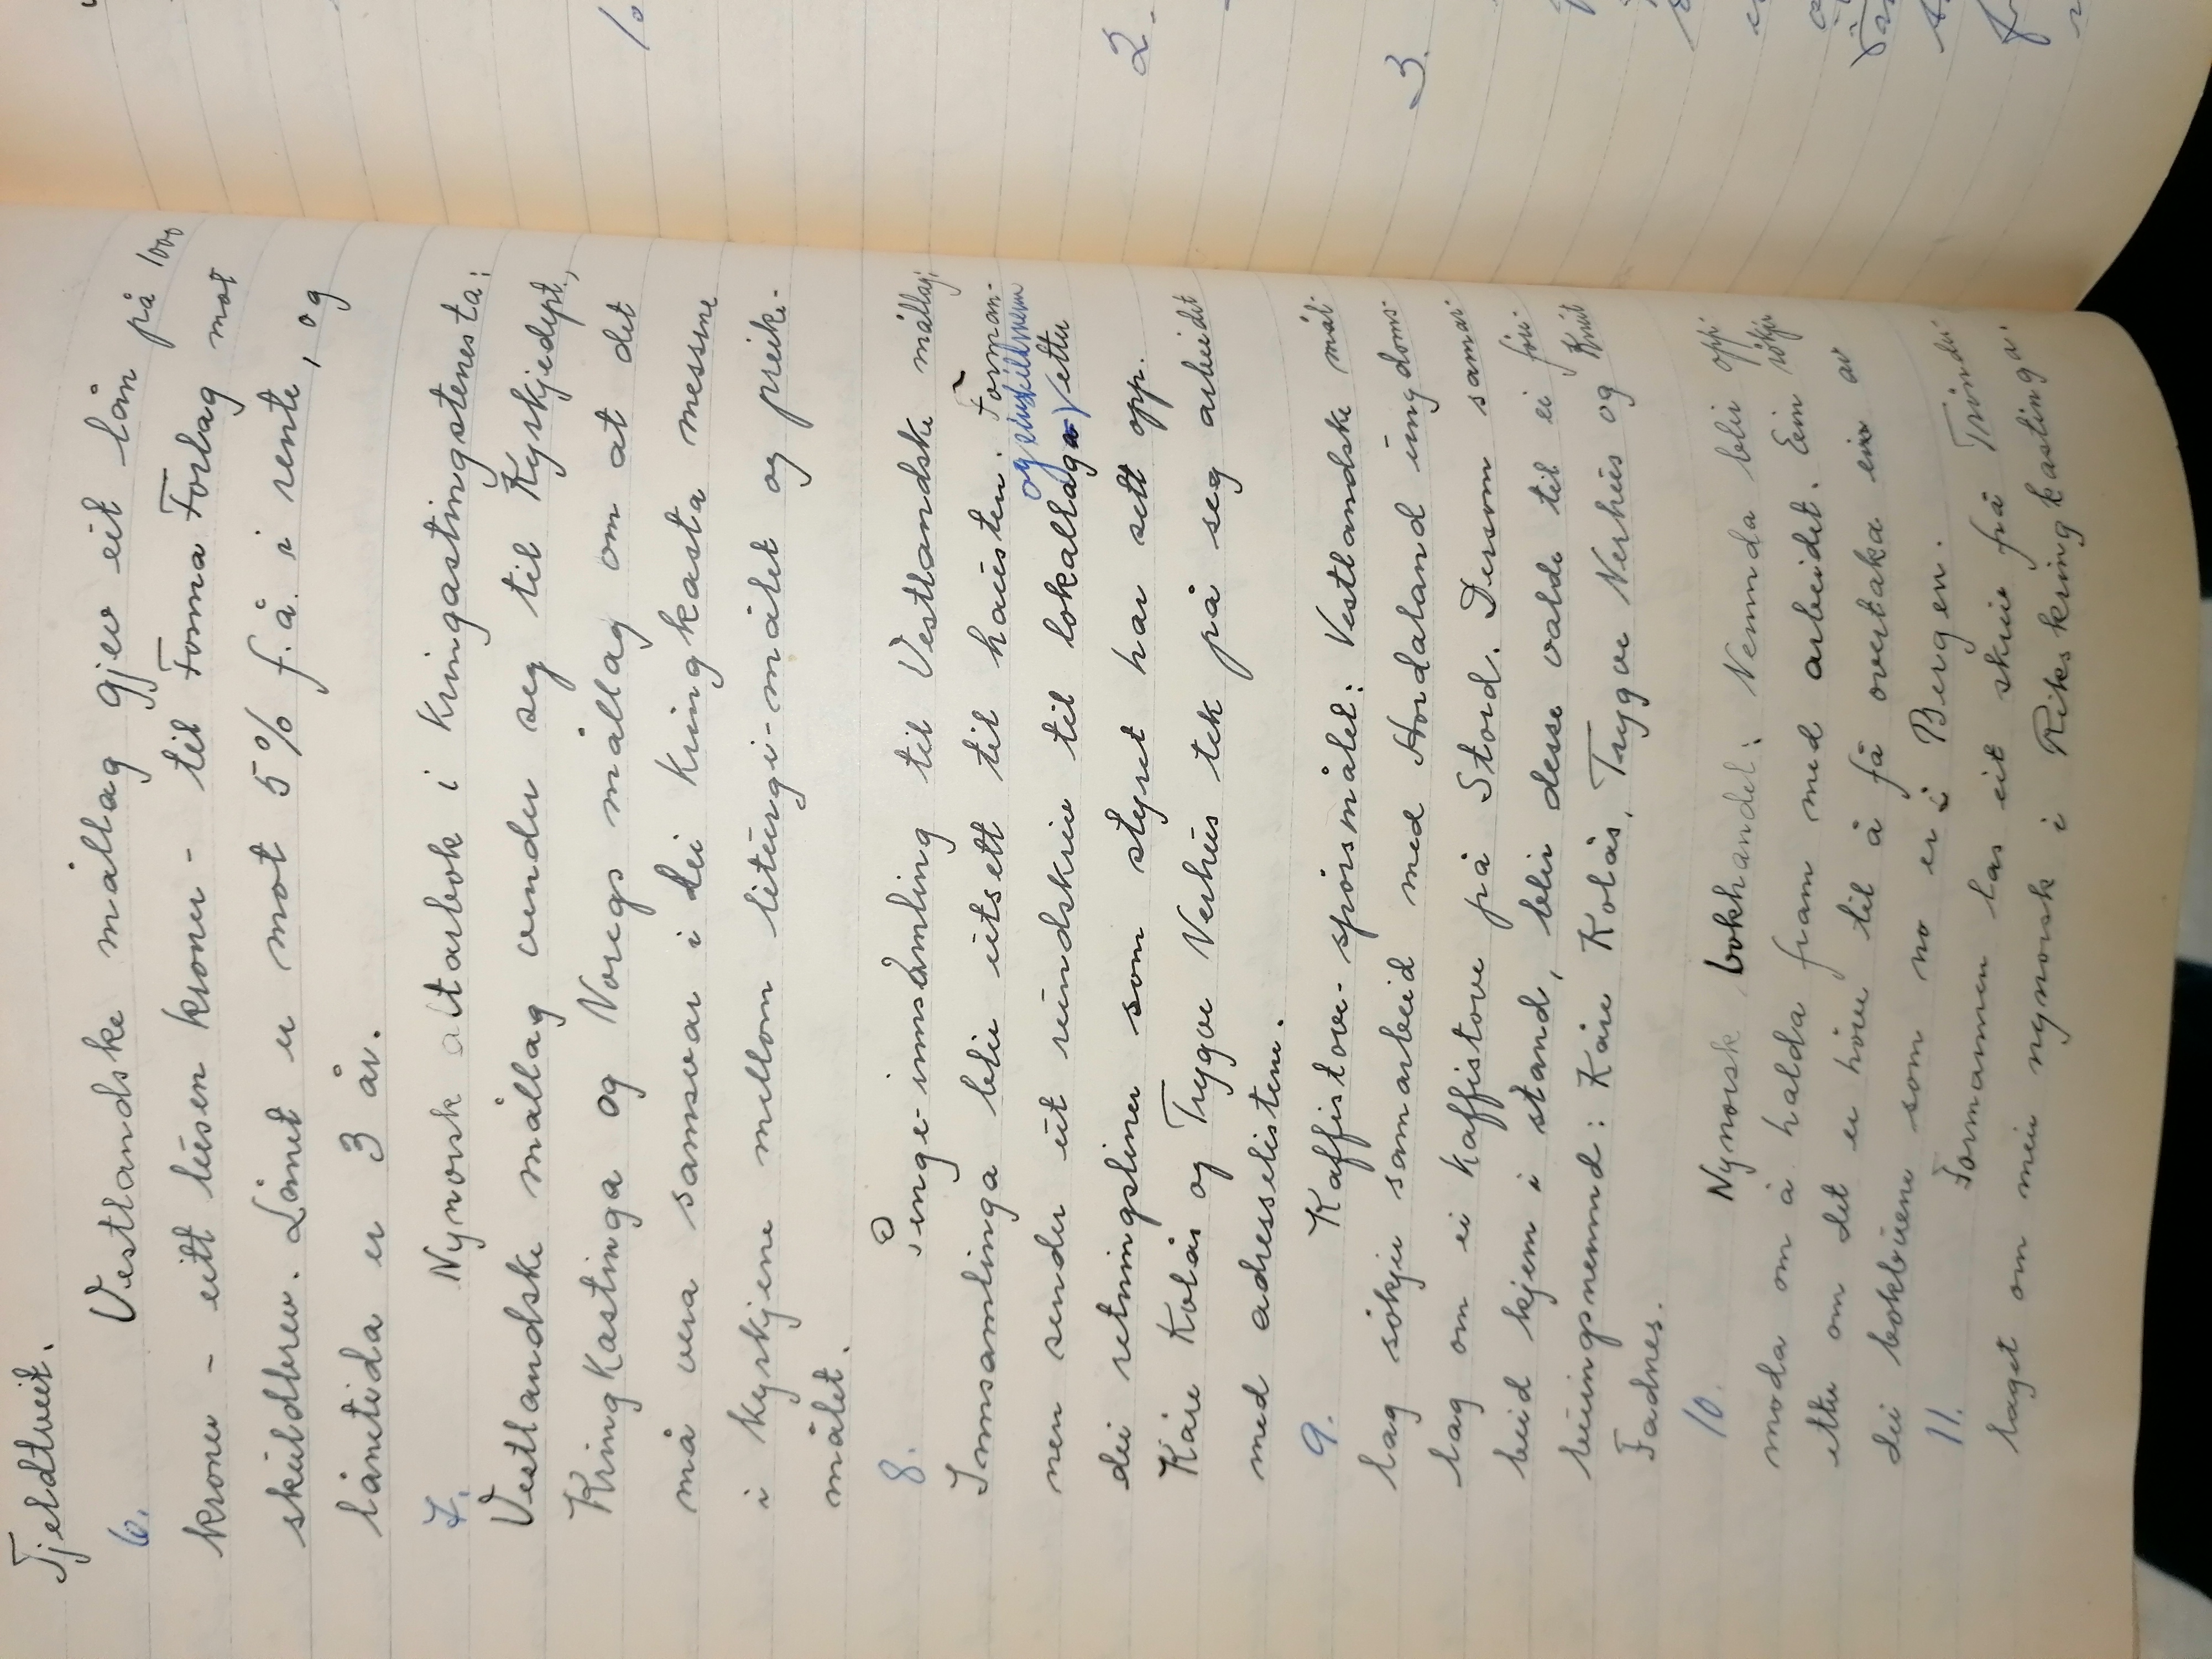 Tjeldtveit.
6. Vestlandske mållag gjev eit lån på 1000
kroner - eitt tusen kroner - til Fonna Forlag mot
skuldbrev. Lånet er mot 5% f.å. i rente, og
lånetida er 3 år.
7. Nynorsk altarbok i kringastingstenesta:
Vestlandske mållag vender seg til Kyrkjedept.,
Kringkastinga og Noregs mållag om at det
må vera samsvar i dei kringkasta messene
i kyrkjene millom liturgi-målet og preike-
målet.
8. Pengeinnsamling til Vestlandske mållag:
Innsamlinga blir utsett til hausten. Forman-
nen sender ut rundskriv til lokallaga og einskillmenn etter
dei retningsliner som styret har sett opp.
Kåre Kolås og Trygve Verhus tek på seg arbeidet
med adresselistene.
9. Kaffistove-spørsmålet: Vestlandske mål-
lag søkjer samarbeid med Hordaland ungdoms-
lag om ei kaffistove på Stord. Dersom samar-
beid kjem i stand, blir desse valde til ei fyre-
buingsnemnd: Kåre Kolås, Trygve Verhus og Knut
Fadnes.
10. Nynorsk bokhandel: Nemnda blir opp-
moda om å halda fram med arbeidet. Ein søkjer
etter om det er høve til å få overtaka ein av
dei bokbuene som no er i Bergen.
11. Formannen las eit skriv frå Trønder-
laget om meir nynorsk i Rikskringkastinga.
1.
2.
3.